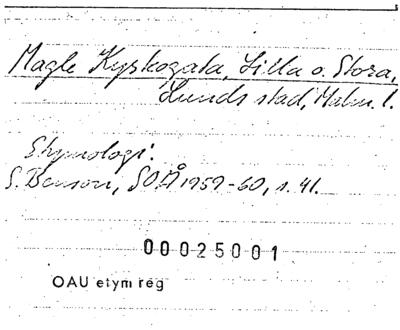 Magle Kyrkogata, Lilla o. Stora,
Lunds stad, Malm. l.
Etymologi:
S. Benson, SOÅ 1959-60, s. 41.
00025001
OAU etym reg